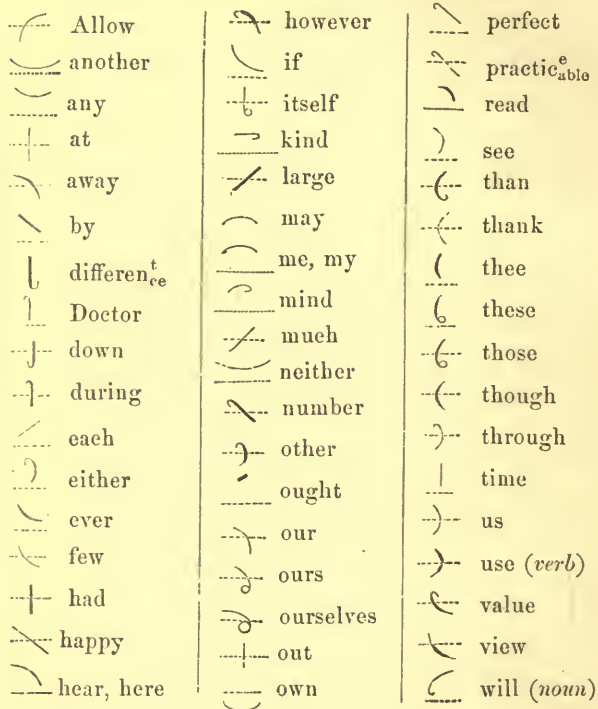 Allow
another
any
at
away
by
different/ce
Doctor
down
during
each
either
ever
few
had
happy
hear, here
however
if
itself
kind
large
may
me, my
mind
much
neither
number
other
ought
our
ours
ourselves
out
own
perfect
practice/able
read
see
than
thank
thee
these
those
though
through
time
us
use (verb)
value
view
will (noun)